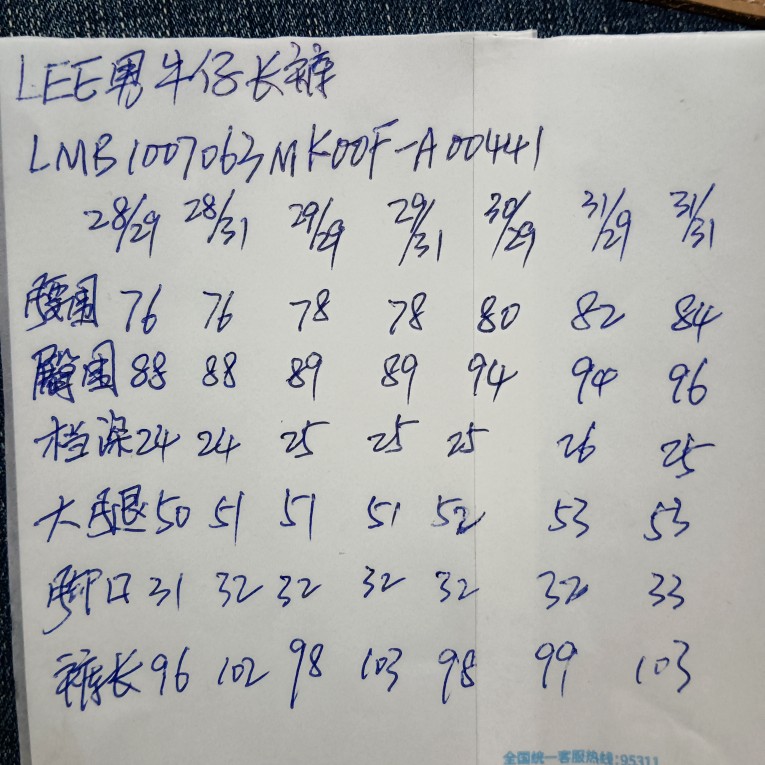 LEE男牛仔长裤
LMB1007063MK00F-A00441
28/29 28/31 29/29 29/31 30/29 31/29 31/31
腰围 76 76 78 78 80 82 84
臀围 88 88 89 89 94 94 96
档深 24 24 25 25 25 26 25
大腿 50 51 51 51 52 53 53
脚口 31 32 32 32 32 32 33
裤长 96 102 98 103 98 99 103
全国统一客服热线:95311